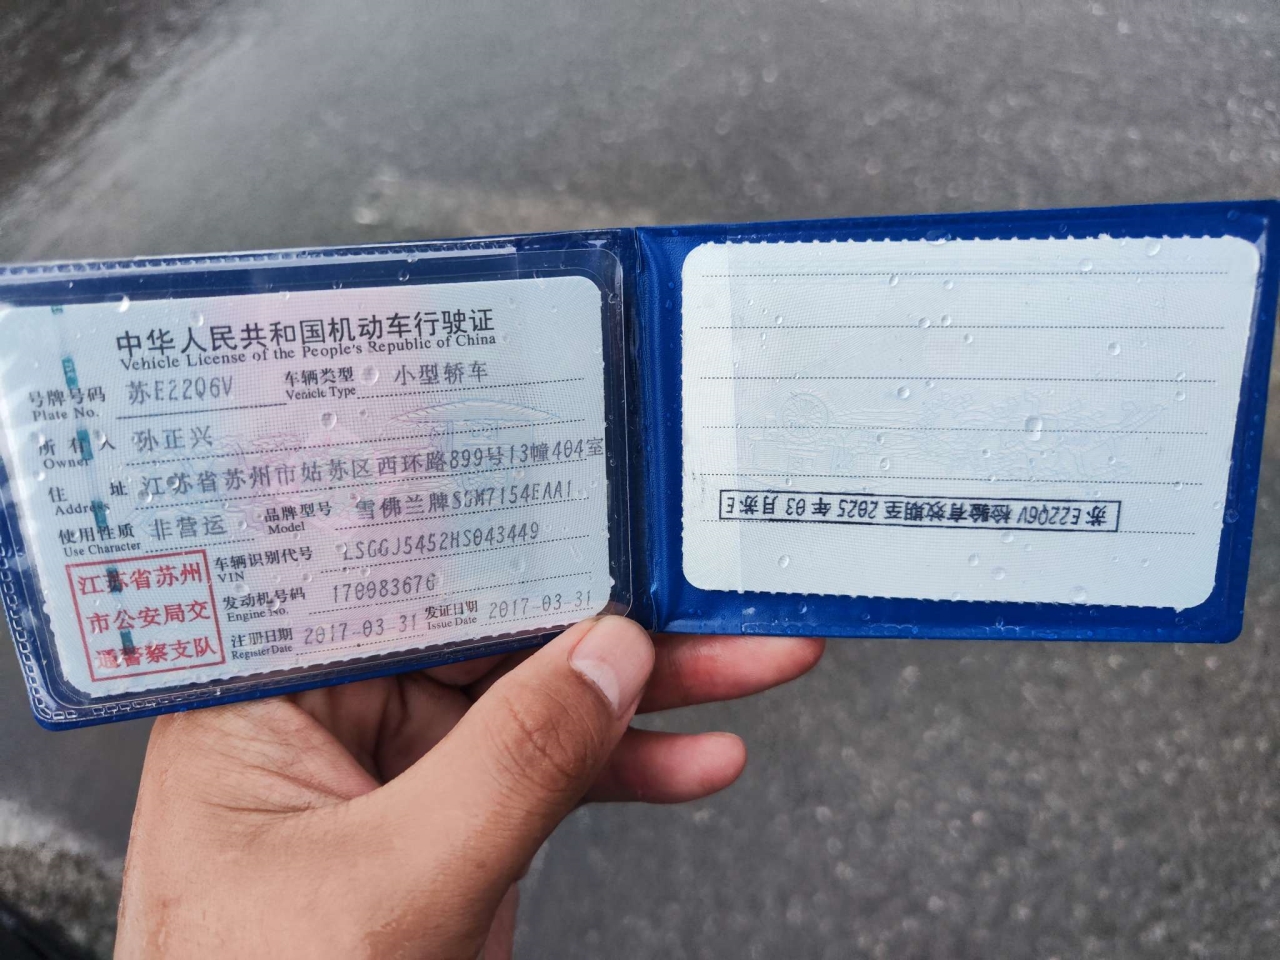 中华人民共和国机动车行驶证
Vehicle License of the People's Republic of China
号牌号码 苏E22Q6V 车辆类型 小型轿车
Plate No. Vehicle Type
所有人 孙正兴
Owner
住址 江苏省苏州市姑苏区西环路899号13幢404室
Address
使用性质 非营运 品牌型号 雪佛兰牌SGM7154EAA1
Use Character Model
江苏省苏州
市公安局交
通警察支队
车辆识别代号 LSGGJ5452HS043449
VIN
发动机号码 170983676
Engine No.
注册日期 2017-03-31 发证日期 2017-03-31
Register Date Issue Date
苏E22Q6V 检验有效期至 2025 年 03 月 苏E